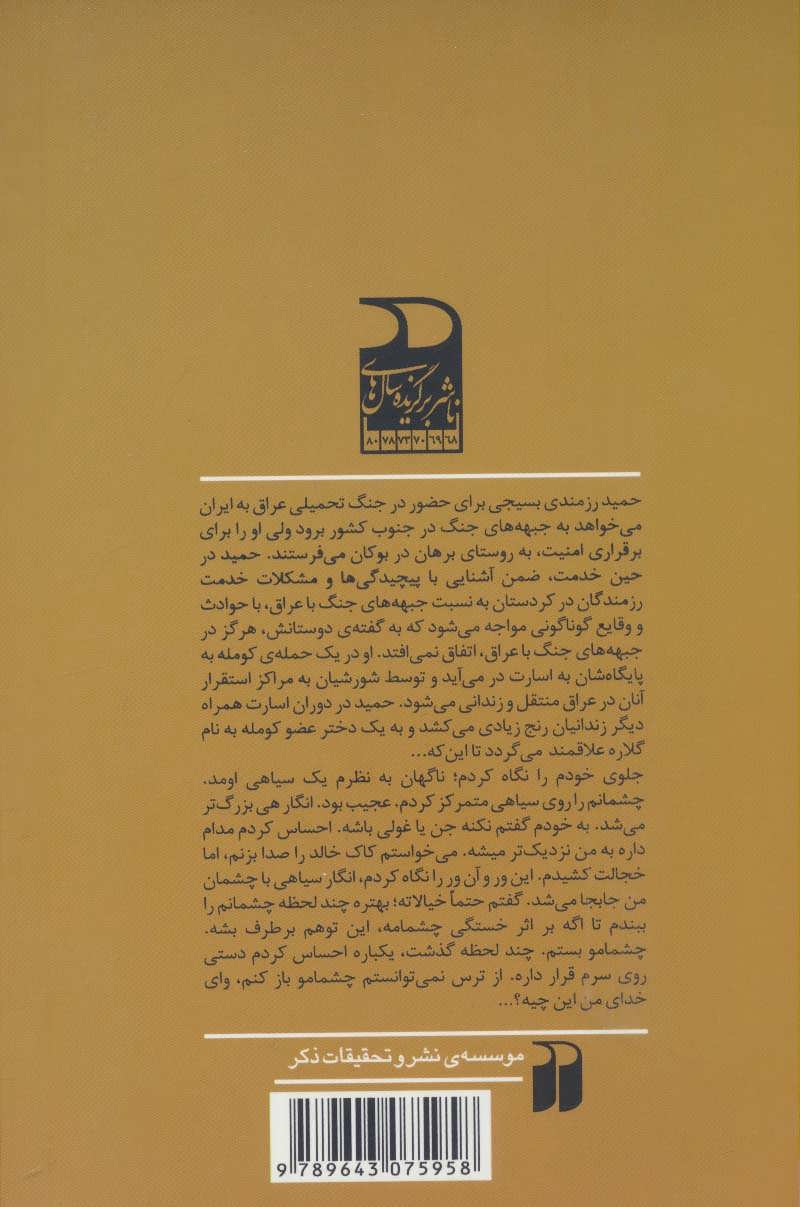 ناشر برگزیده سال‌های
۶۸ ۶۹ ۷۰ ۷۳ ۷۸ ۸۰
حمید رزمندی بسیجی برای حضور در جنگ تحمیلی عراق به ایران
می‌خواهد به جبهه‌های جنگ در جنوب کشور برود ولی او را برای
برقراری امنیت، به روستای برهان در بوکان می‌فرستند. حمید در
حین خدمت، ضمن آشنایی با پیچیدگی‌ها و مشکلات خدمت
رزمندگان در کردستان به نسبت جبهه‌های جنگ با عراق، با حوادث
و وقایع گوناگونی مواجه می‌شود که به گفته‌ی دوستانش، هرگز در
جبهه‌های جنگ با عراق، اتفاق نمی‌افتد. او در یک حمله‌ی کومله به
پایگاه‌شان به اسارت در می‌آید و توسط شورشیان به مراکز استقرار
آنان در عراق منتقل و زندانی می‌شود. حمید در دوران اسارت همراه
دیگر زندانیان رنج زیادی می‌کشد و به یک دختر عضو کومله به نام
گلاره علاقمند می‌گردد تا این‌که...
جلوی خودم را نگاه کردم؛ ناگهان به نظرم یک سیاهی اومد.
چشمانم را روی سیاهی متمرکز کردم. عجیب بود. انگار هی بزرگ‌تر
می‌شد. به خودم گفتم نکنه جن یا غولی باشه. احساس کردم مدام
داره به من نزدیک‌تر میشه. می‌خواستم کاک خالد را صدا بزنم، اما
خجالت کشیدم. این ور و آن ور را نگاه کردم، انگار سیاهی با چشمان
من جابجا می‌شد. گفتم حتماً خیالاته؛ بهتره چند لحظه چشمانم را
ببندم تا اگه بر اثر خستگی چشمامه، این توهم برطرف بشه.
چشمامو بستم. چند لحظه گذشت، یکباره احساس کردم دستی
روی سرم قرار داره. از ترس نمی‌توانستم چشمامو باز کنم، وای
خدای من این چیه؟...
موسسه‌ی نشر و تحقیقات ذکر
9 789643 075958